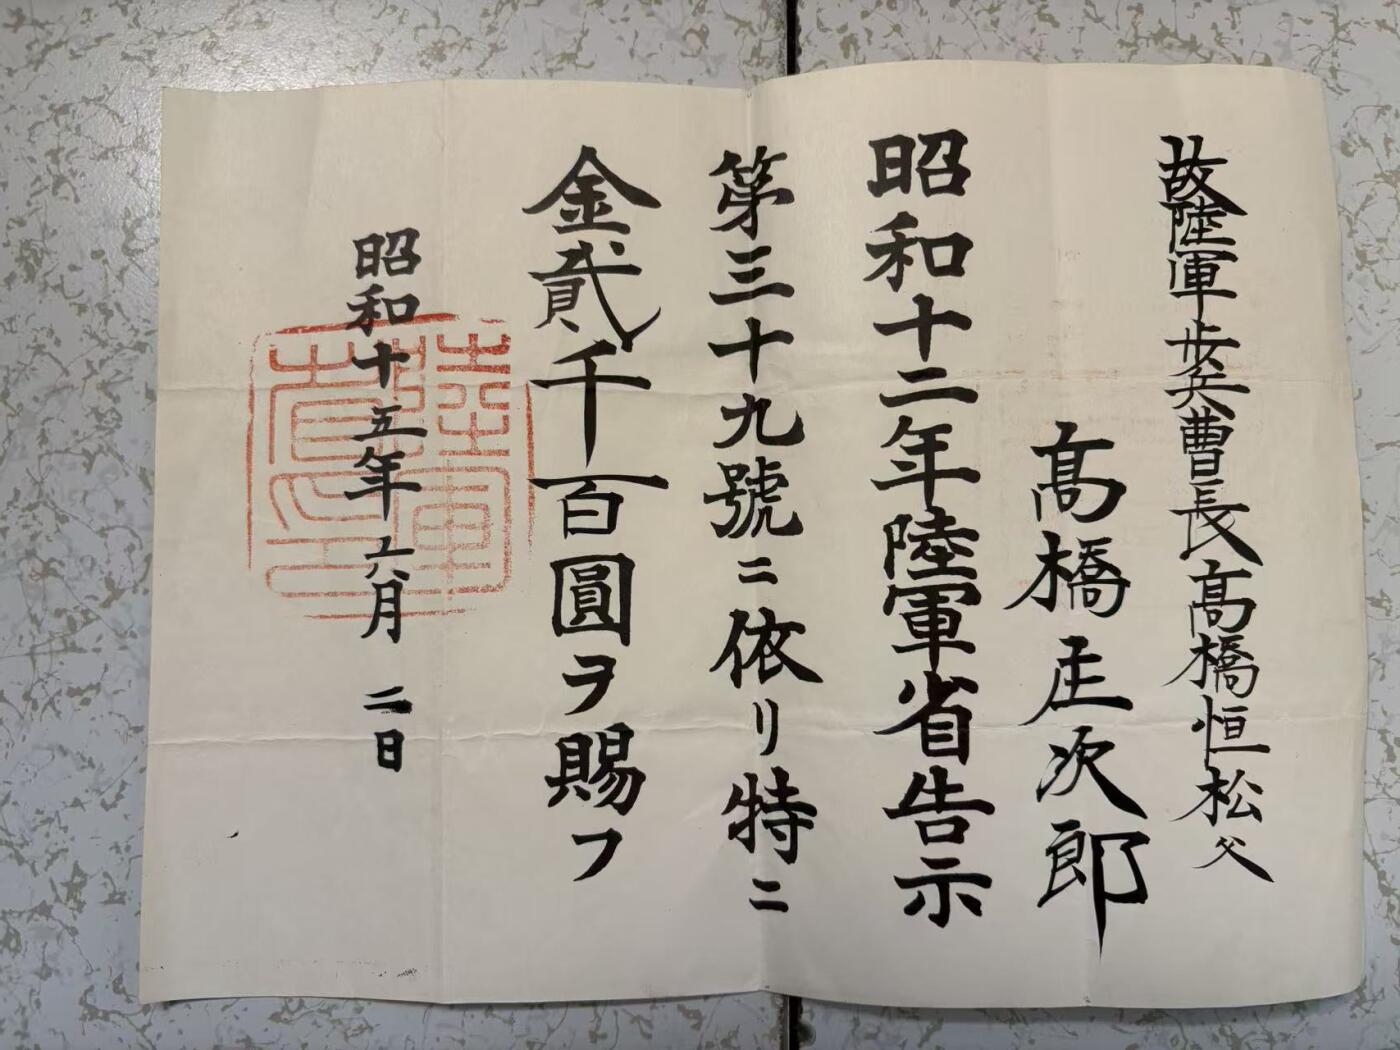 故陸軍歩兵曹長髙橋恒松父
髙橋庄次郎
昭和十二年陸軍省告示
第三十九號ニ依リ特ニ
金貳千一百圓ヲ賜フ
昭和十五年六月二日
陸軍省印